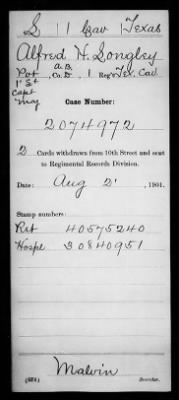 S | 1 Cav | Texas
Alfred H. Longley
A.B.
Pvt , Co. D , 1 Reg't Tex. Cav
1st St
Capt
Maj
Case Number:
2074972
2 Cards withdrawn from 10th Street and sent
to Regimental Records Division.
Date: Aug 2 , 1901.
Stamp numbers:
Ret 40575240
Hospl 30840951
Malvin
(684)
Searcher.